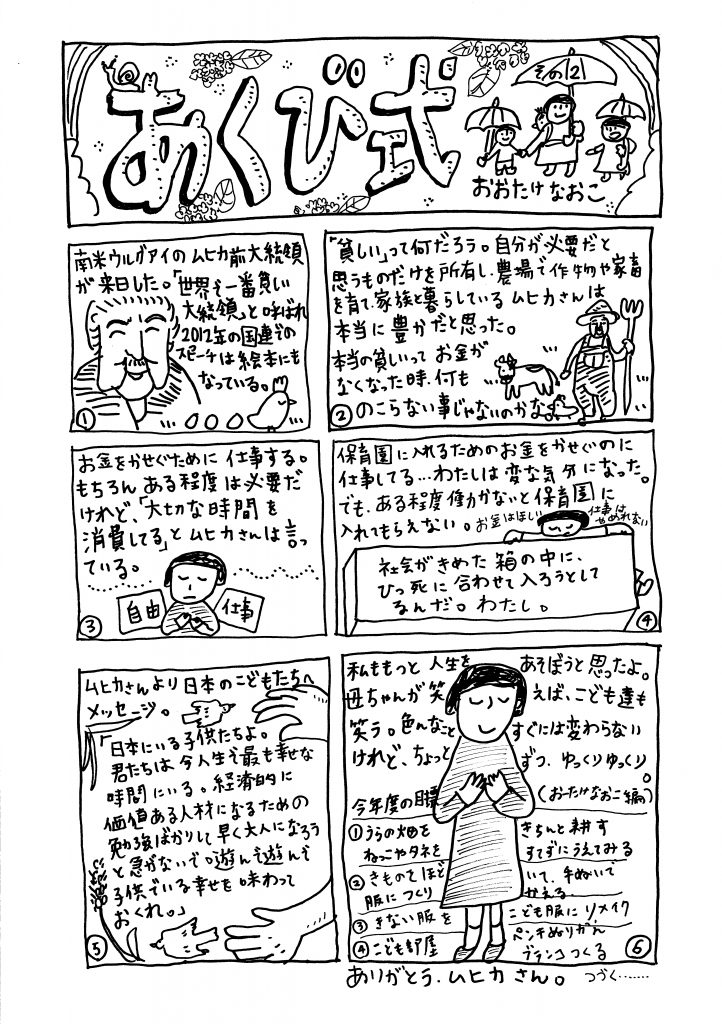 あくび式
その121
おおたけなおこ
南米ウルグアイのムヒカ前大統領
が来日した。「世界で一番貧しい
大統領」と呼ばれ
2012年の国連での
スピーチは絵本にも
なっている。
①
「貧しい」って何だろう。自分が必要だと
思うものだけを所有し、農場で作物や家畜
を育て、家族と暮らしているムヒカさんは
本当に豊かだと思った。
本当の貧しいって お金が
なくなった時、何も
のこらない事じゃないのかな。
②
お金をかせぐために 仕事する。
もちろん ある程度は必要だ
けれど、「大切な時間を
消費してる」とムヒカさんは言っ
ている。
自由
仕事
③
保育園に入れるためのお金をかせぐのに
仕事してる…わたしは変な気分になった。
でも、ある程度働かないと保育園に
入れてもらえない。
お金はほしい
仕事は
やめれない
社会がきめた 箱の中に、
ひっ死に合わせて入ろうとして
るんだ。わたし。
④
ムヒカさんより日本のこどもたちへ
メッセージ。
「日本にいる子供たちよ。
君たちは今人生で最も幸せな
時間にいる。経済的に
価値ある人材になるための
勉強ばかりして早く大人になろう
と急がないで。遊んで遊んで
子供でいる幸せを味わって
おくれ。」
⑤
私ももっと人生を あそぼうと思ったよ。
母ちゃんが笑えば、こども達も
笑う。色んなこと すぐには変わらない
けれど、ちょっとずつ、ゆっくりゆっくり。
今年度の目標 (おおたけなおこ編)
①うらの畑を きちんと耕す
ねっこやタネを すてずにうえてみる
②きものをほどいて、手ぬいで
服につくりかえる
③きない服を こども服にリメイク
④こども部屋 ペンキぬりかん
ブランコつくる
⑥
ありがとう、ムヒカさん。 つづく……